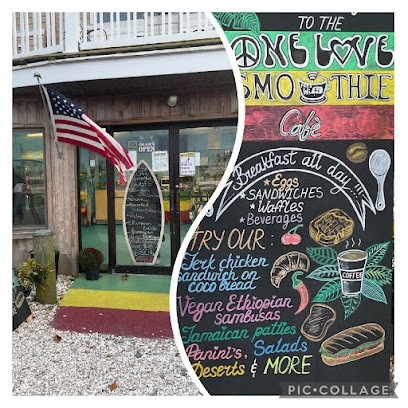 OPEN
TO THE
ONE LOVE
SMOOTHIE
Café
Breakfast all day!!!
Eggs
SANDWICHES
Waffles
Beverages
TRY OUR:
Jerk chicken
sandwich on
coco bread
COFFEE
Vegan Ethiopian
sambusas
Jamaican patties
Panini's, Salads
Deserts & MORE
PIC•COLLAGE